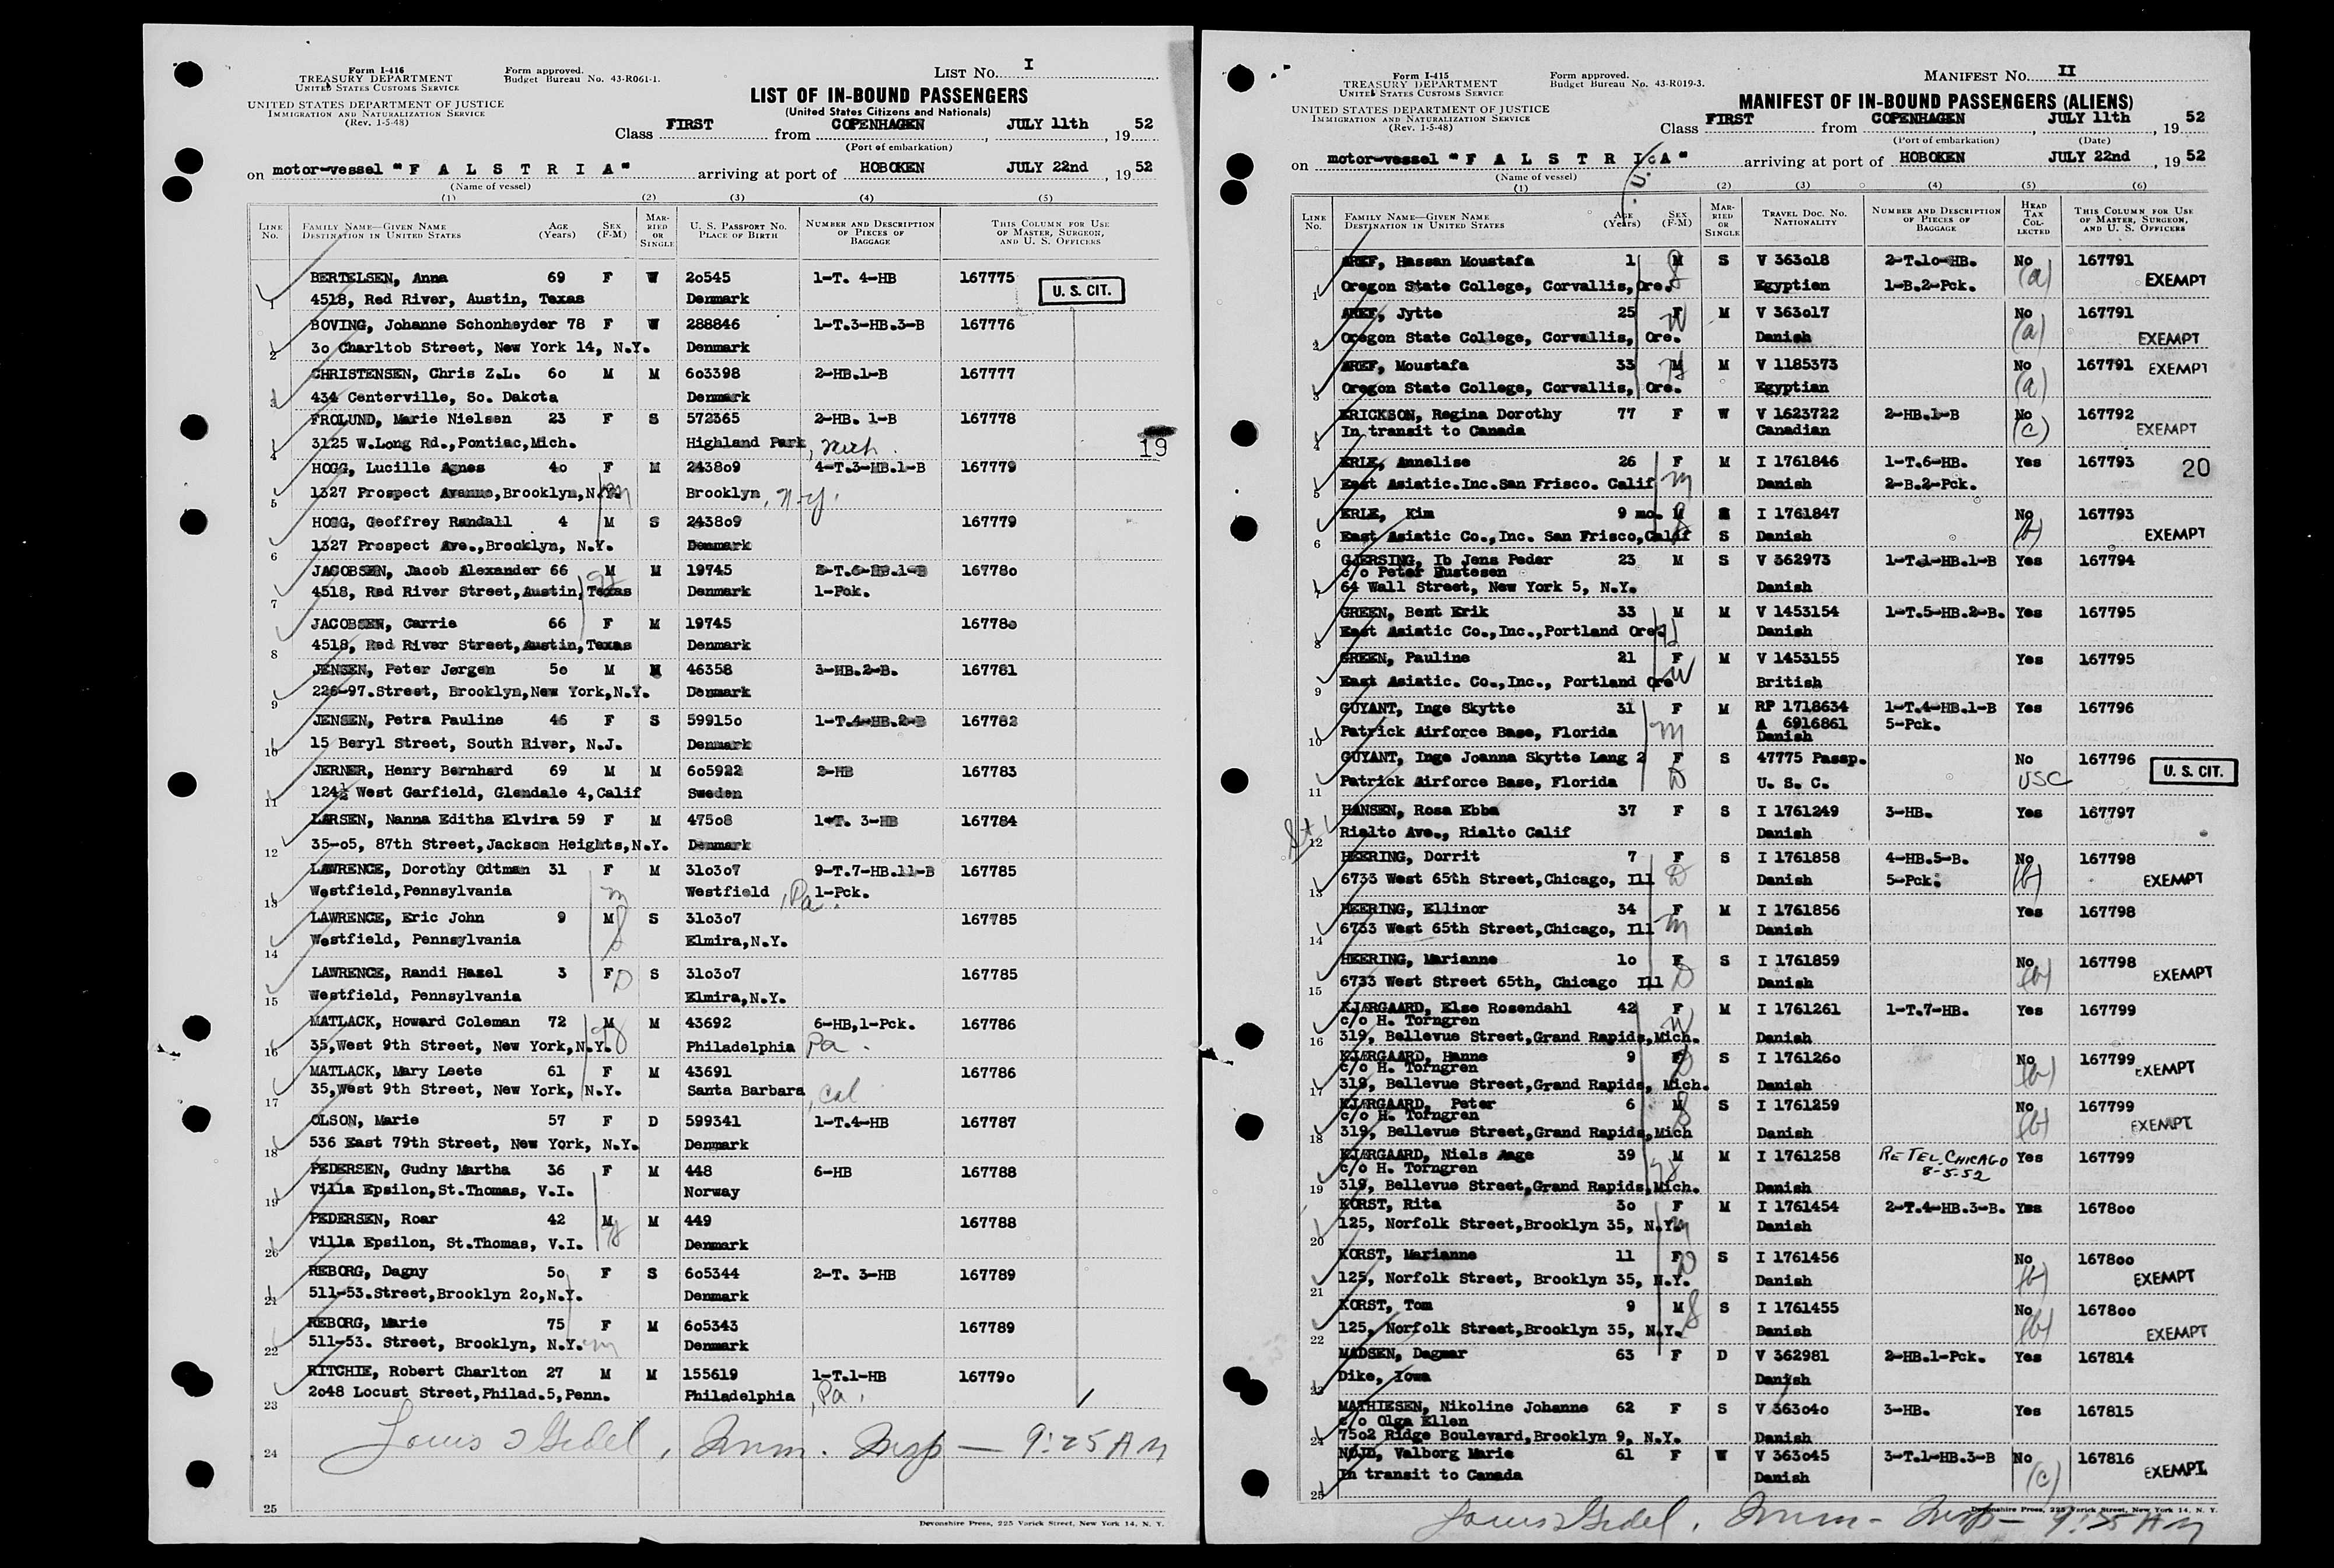 Form I-416
TREASURY DEPARTMENT
UNITED STATES CUSTOMS SERVICE
Form approved.
Budget Bureau No. 43-R061-1.
LIST NO. I
UNITED STATES DEPARTMENT OF JUSTICE
IMMIGRATION AND NATURALIZATION SERVICE
(Rev. 1-5-48)
LIST OF IN-BOUND PASSENGERS
(United States Citizens and Nationals)
Class FIRST from COPENHAGEN, JULY 11th, 19 52
(Port of embarkation)
on motor-vessel "F A L S T R I A" arriving at port of HOBOKEN JULY 22nd, 19 52
(Name of vessel)
(1) (2) (3) (4) (5)
LINE No. FAMILY NAME—GIVEN NAME DESTINATION IN UNITED STATES AGE (Years) SEX (F-M) MARRIED OR SINGLE U. S. PASSPORT NO. PLACE OF BIRTH NUMBER AND DESCRIPTION OF PIECES OF BAGGAGE THIS COLUMN FOR USE OF MASTER, SURGEON, AND U. S. OFFICERS
BERTELSEN, Anna 69 F W 2o545 1-T. 4-HB 167775 U. S. CIT.
1 4518, Red River, Austin, Texas Denmark
BOVING, Johanne Schonheyder 78 F W 288846 1-T.3-HB.3-B 167776
2 3o Charltob Street, New York 14, N.Y. Denmark
CHRISTENSEN, Chris Z.L. 6o M M 6o3398 2-HB.1-B 167777
3 434 Centerville, So. Dakota Denmark
FROLUND, Marie Nielsen 23 F S 572365 2-HB. 1-B 167778
4 3125 W.Long Rd.,Pontiac,Mich. Highland Park, Mich. 19
HOGG, Lucille Agnes 4o F M 2438o9 4-T.3-HB.1-B 167779
5 1327 Prospect Avenue,Brooklyn,N.Y. m Brooklyn, N.Y.
HOGG, Geoffrey Randall 4 M S 2438o9 167779
6 1327 Prospect Ave.,Brooklyn, N.Y. Denmark
JACOBSEN, Jacob Alexander 66 M M 19745 167780
7 4518, Red River Street,Austin,Texas Denmark 1-Pck.
JACOBSEN, Carrie 66 F M 19745 16778o
8 4518, Red River Street,Austin,Texas Denmark
JENSEN, Peter Jørgen 5o M M 46358 3-HB.2-B. 167781
9 226-97.Street, Brooklyn,New York,N.Y. Denmark
JENSEN, Petra Pauline 46 F S 59915o 1-T.4-HB.2-B 167782
10 15 Beryl Street, South River, N.J. Denmark
JERNER, Henry Bernhard 69 M M 6o5922 2-HB 167783
11 124½ West Garfield, Glendale 4,Calif Sweden
LARSEN, Nanna Editha Elvira 59 F M 475o8 1-T. 3-HB 167784
12 35-o5, 87th Street,Jackson Heights,N.Y. Denmark
LAWRENCE, Dorothy Odtman 31 F M 31o3o7 9-T.7-HB.11-B 167785
13 Westfield,Pennsylvania m Westfield, Pa. 1-Pck.
LAWRENCE, Eric John 9 M S 31o3o7 167785
14 Westfield, Pennsylvania Elmira,N.Y.
LAWRENCE, Randi Hazel 3 F D S 31o3o7 167785
15 Westfield, Pennsylvania Elmira,N.Y.
MATLACK, Howard Coleman 72 M M 43692 6-HB,1-Pck. 167786
16 35,West 9th Street, New York,N.Y. Philadelphia Pa.
MATLACK, Mary Leete 61 F M 43691 167786
17 35,West 9th Street, New York, N.Y. Santa Barbara, Cal
OLSON, Marie 57 F D 599341 1-T.4-HB 167787
18 536 East 79th Street, New York, N.Y. Denmark
PEDERSEN, Gudny Martha 36 F M 448 6-HB 167788
19 Villa Epsilon,St.Thomas, V.I. Norway
PEDERSEN, Roar 42 M M 449 167788
20 Villa Epsilon, St.Thomas, V.I. Denmark
REBORG, Dagny 5o F S 6o5344 2-T. 3-HB 167789
21 511-53.Street,Brooklyn 2o,N.Y. Denmark
REBORG, Marie 75 F M 6o5343 167789
22 511-53. Street, Brooklyn, N.Y. m Denmark
RITCHIE, Robert Charlton 27 M M 155619 1-T.1-HB 16779o
23 2o48 Locust Street,Philad.5,Penn. Philadelphia, Pa.
24 Imm. Insp — 9:25 AM
25
Devonshire Press, 225 Varick Street, New York 14, N. Y.
Form I-415
TREASURY DEPARTMENT
UNITED STATES CUSTOMS SERVICE
Form approved.
Budget Bureau No. 43-R019-3.
MANIFEST NO. II
UNITED STATES DEPARTMENT OF JUSTICE
IMMIGRATION AND NATURALIZATION SERVICE
(Rev. 1-5-48)
MANIFEST OF IN-BOUND PASSENGERS (ALIENS)
Class FIRST from COPENHAGEN, JULY 11th, 19 52
(Port of embarkation) (Date)
on motor-vessel "F A L S T R I A" arriving at port of HOBOKEN JULY 22nd, 19 52
(Name of vessel)
(1) (2) (3) (4) (5) (6)
LINE No. FAMILY NAME—GIVEN NAME DESTINATION IN UNITED STATES AGE (Years) SEX (F-M) MARRIED OR SINGLE TRAVEL DOC. NO. NATIONALITY NUMBER AND DESCRIPTION OF PIECES OF BAGGAGE HEAD TAX COLLECTED THIS COLUMN FOR USE OF MASTER, SURGEON, AND U. S. OFFICERS
AREF, Hassan Moustafa 1 M S V 363o18 2-T.1o-HB. No 167791
1 Oregon State College, Corvallis,Ore. Egyptian 1-B.2-Pck. (a) EXEMPT
AREF, Jytte 25 F M V 363o17 No 167791
2 Oregon State College, Corvallis, Ore. Danish (a) EXEMPT
AREF, Moustafa 33 M M V 1185373 No 167791 EXEMPT
3 Oregon State College, Corvallis, Ore. Egyptian (a)
ERICKSON, Regina Dorothy 77 F W V 1623722 2-HB.1-B No 167792
4 In transit to Canada Canadian (c) EXEMPT
ERLE, Annelise 26 F M I 1761846 1-T.6-HB. Yes 167793 20
5 East Asiatic.Inc.San Frisco. Calif m Danish 2-B.2-Pck.
ERLE, Kim 9 mo. M I 1761847 No 167793
6 East Asiatic Co.,Inc. San Frisco,Calif S Danish (b) EXEMPT
GJERSING, Ib Jens Peder 23 M S V 362973 1-T.1-HB.1-B Yes 167794
c/o Peter Mustesen
7 64 Wall Street, New York 5, N.Y. Danish
GREEN, Bent Erik 33 M M V 1453154 1-T.5-HB.2-B. Yes 167795
8 East Asiatic Co.,Inc.,Portland Ore. Danish
GREEN, Pauline 21 F M V 1453155 Yes 167795
9 East Asiatic. Co.,Inc., Portland Ore W British
GUYANT, Inge Skytte 31 F M RP 1718634 1-T.4-HB.1-B Yes 167796
A 6916861 5-Pck.
10 Patrick Airforce Base, Florida m Danish
GUYANT, Inge Joanna Skytte Lang 2 F S 47775 Passp. No 167796 U. S. CIT.
11 Patrick Airforce Base, Florida D U. S. C. USC
HANSEN, Rosa Ebba 37 F S I 1761249 3-HB. Yes 167797
12 Rialto Ave., Rialto Calif Danish
HEERING, Dorrit 7 F S I 1761858 4-HB.5-B. No 167798
13 6733 West 65th Street,Chicago, Ill D Danish 5-Pck. (b) EXEMPT
HEERING, Ellinor 34 F M I 1761856 Yes 167798
14 6733 West 65th Street,Chicago, Ill m Danish
HEERING, Marianne 1o F S I 1761859 No 167798
15 6733 West Street 65th, Chicago Ill D Danish (b) EXEMPT
KJÆRGAARD, Else Rosendahl 42 F M I 1761261 1-T.7-HB. Yes 167799
c/o H. Torngren
16 319, Bellevue Street,Grand Rapids,Mich. Danish
KJÆRGAARD, Hanne 9 F S I 176126o No 167799
c/o H. Torngren EXEMPT
17 319, Bellevue Street,Grand Rapids, Mich. Danish (b)
KJÆRGAARD, Peter 6 M S I 1761259 No 167799
c/o H. Torngren
18 319, Bellevue Street,Grand Rapids,Mich Danish (b) EXEMPT
KJÆRGAARD, Niels Aage 39 M M I 1761258 RE TEL CHICAGO Yes 167799
c/o H. Torngren 8-5-52
19 319, Bellevue Street,Grand Rapids,Mich. Danish
KORST, Rita 3o F M I 1761454 2-T.4-HB.3-B. Yes 1678oo
20 125, Norfolk Street,Brooklyn 35, N.Y. m Danish
KORST, Marianne 11 F D S I 1761456 No 1678oo
21 125, Norfolk Street, Brooklyn 35, N.Y. Danish (b) EXEMPT
KORST, Tom 9 M S I 1761455 No 1678oo
22 125, Norfolk Street,Brooklyn 35, N.Y. Danish (b) EXEMPT
MADSEN, Dagmar 63 F D V 362981 2-HB.1-Pck. Yes 167814
23 Dike, Iowa Danish
MATHIESEN, Nikoline Johanne 62 F S V 363o4o 3-HB. Yes 167815
c/o Olga Ellen
24 75o2 Ridge Boulevard,Brooklyn 9, N.Y. Danish
NØJD, Valborg Marie 61 F W V 363o45 3-T.1-HB.3-B No 167816
25 In transit to Canada Danish (c) EXEMPT
Devonshire Press, 225 Varick Street, New York 14, N. Y.
Imm. Insp — 9:25 AM